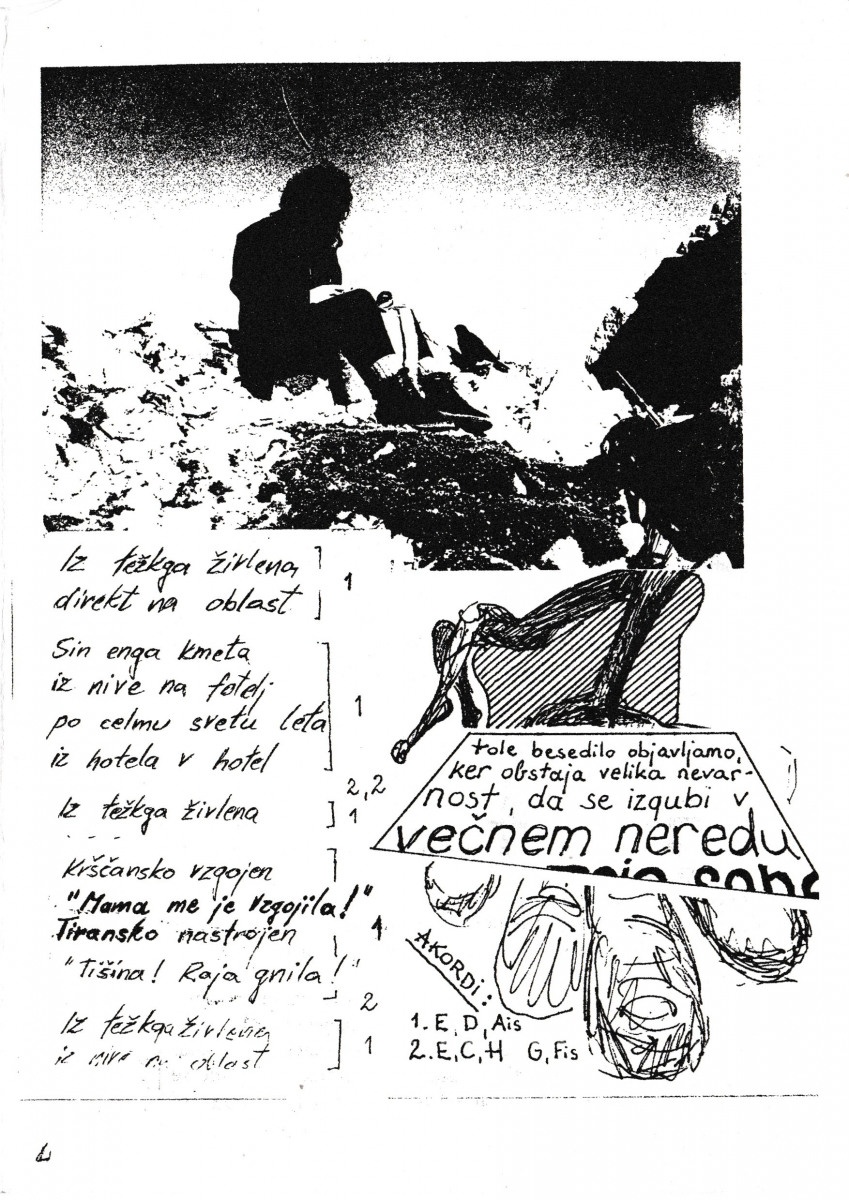 Iz težkga živlena
direkt na oblast
1
Sin enga kmeta
iz nive na fotelj
po celmu svetu leta
iz hotela v hotel
1
2,2
Iz težkga živlena
1
Krščansko vzgojen
"Mama me je vzgojila!"
Tiransko nastrojen
"Tišina! Raja gnila!"
1
2
Iz težkga živlena
iz nive na oblast
1
tole besedilo objavljamo,
ker obstaja velika nevar-
nost, da se izgubi v
večnem neredu
AKORDI:
1. E, D, Ais
2. E, C, H G, Fis